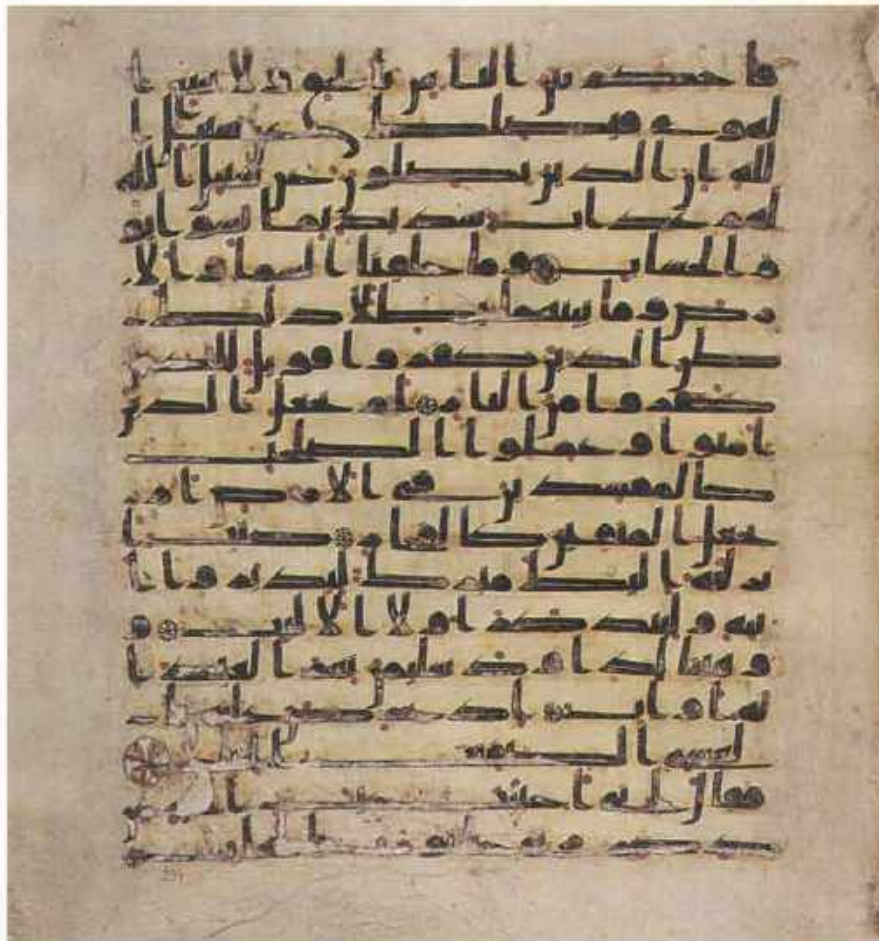 فاحكم بين الناس بالحق ولا تتبع ا
لهوى فيضلك عن سبيل ا
لله ان الذين يضلون عن سبيل الله
لهم عذاب شديد بما نسوا يو
م الحساب وما خلقنا السما والا
رض وما بينهما بطلا ذلك
ظن الذين كفروا فويل للذين
كفروا من النار ام نجعل الذين
امنوا وعملوا الصلحت
كالمفسدين في الارض ام
نجعل المتقين كالفجار كتب ا
نزلنه اليك مبرك ليدبروا ا
يته وليتذكر اولوا الالبب و
هبنا لداود سليمن نعم العبد ا
نه اواب اذ عرض عليه با
لعشي الصفنت الجياد
فقال اني احببت حب الخير
عن ذكر ربي حتى توارت بالحجاب